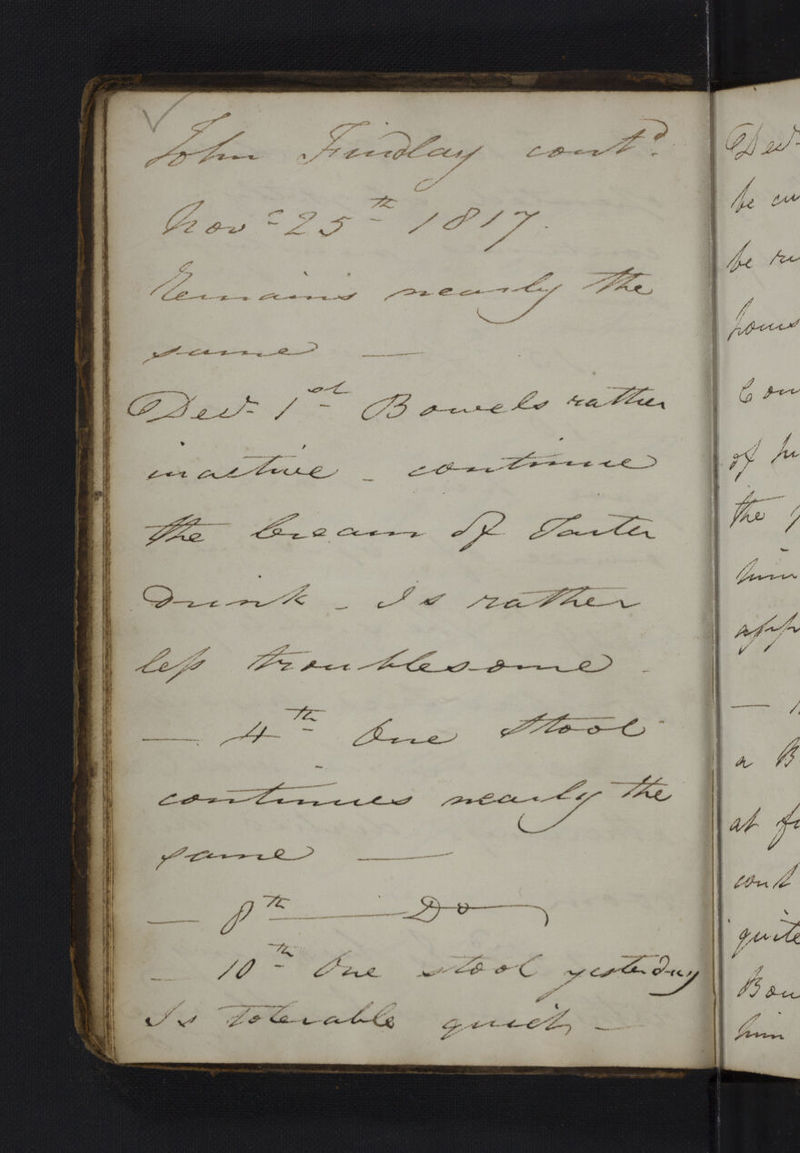 John Findlay contd.
Novr 25th 1817.
Remains nearly the
same —
Decr 1st Bowels rather
inactive - continue
the Cream of Tarter
Drink - Is rather
less troublesome -
— 4th One Stool
continues nearly the
same —
— 8th — Do
— 10th One stool yesterday
Is Tolerable quiet, -
Decr
be
be
hours
Con
of
the
him
app
—
a B
at
cont
quite
Bow
him